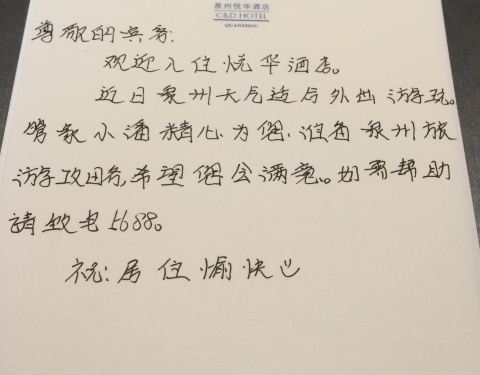 泉州悦华酒店
C&D HOTEL
QUANZHOU
尊敬的宾客:
欢迎入住悦华酒店。
近日泉州天气适合外出游玩。
管家小潘精心为您准备泉州旅
游攻略,希望您会满意。如需帮助
请致电5688。
祝:居住愉快